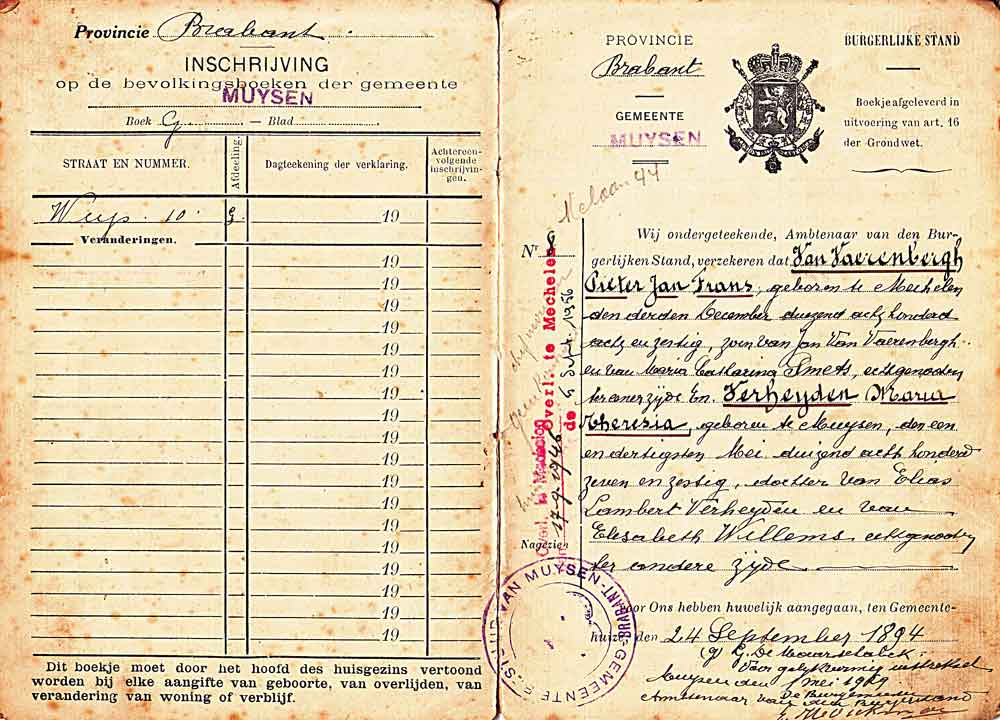 Provincie Brabant.
INSCHRIJVING
op de bevolkingsboeken der gemeente
MUYSEN
Boek G. — Blad
STRAAT EN NUMMER.
Afdeeling.
Dagteekening der verklaring.
Achtereen-
volgende
inschrijvin-
gen.
10. G. 19
Veranderingen.
19
19
19
19
19
19
19
19
19
19
19
19
19
19
19
19
19
19
Dit boekje moet door het hoofd des huisgezins vertoond
worden bij elke aangifte van geboorte, van overlijden, van
verandering van woning of verblijf.
PROVINCIE
Brabant
GEMEENTE
MUYSEN
BURGERLIJKE STAND
Boekje afgeleverd in
uitvoering van art. 16
der Grondwet.
Melaan 44
Nr 8
Overl. te Mechelen
de 5 Sept. 1936
17-9-1946
Nagezien
Wij ondergeteekende, Ambtenaar van den Bur-
gerlijken Stand, verzekeren dat Van Vaerenbergh
Pieter Jan Frans, geboren te Mechelen
den derden December duizend acht honderd
acht en zestig, zoon van Jan Van Vaerenbergh
en van Maria Catharina Smets, echtgenooten
ter eener zijde En Verheyden Maria
Theresia, geboren te Muysen, den een
en dertigsten Mei duizend acht honderd
zeven en zestig, dochter van Elias
Lambert Verheyden en van
Elisabeth Willems echtgenooten
ter andere zijde
voor Ons hebben huwelijk aangegaan, ten Gemeente-
huize, den 24 September 1894
(g) De Maarschalck
Voor gelijkvormig uittreksel
Muysen den 1 Mei 1919
De Burgemeester
Ambtenaar van den Burgerstand
MUYSEN - BRABANT - GEMEENTE